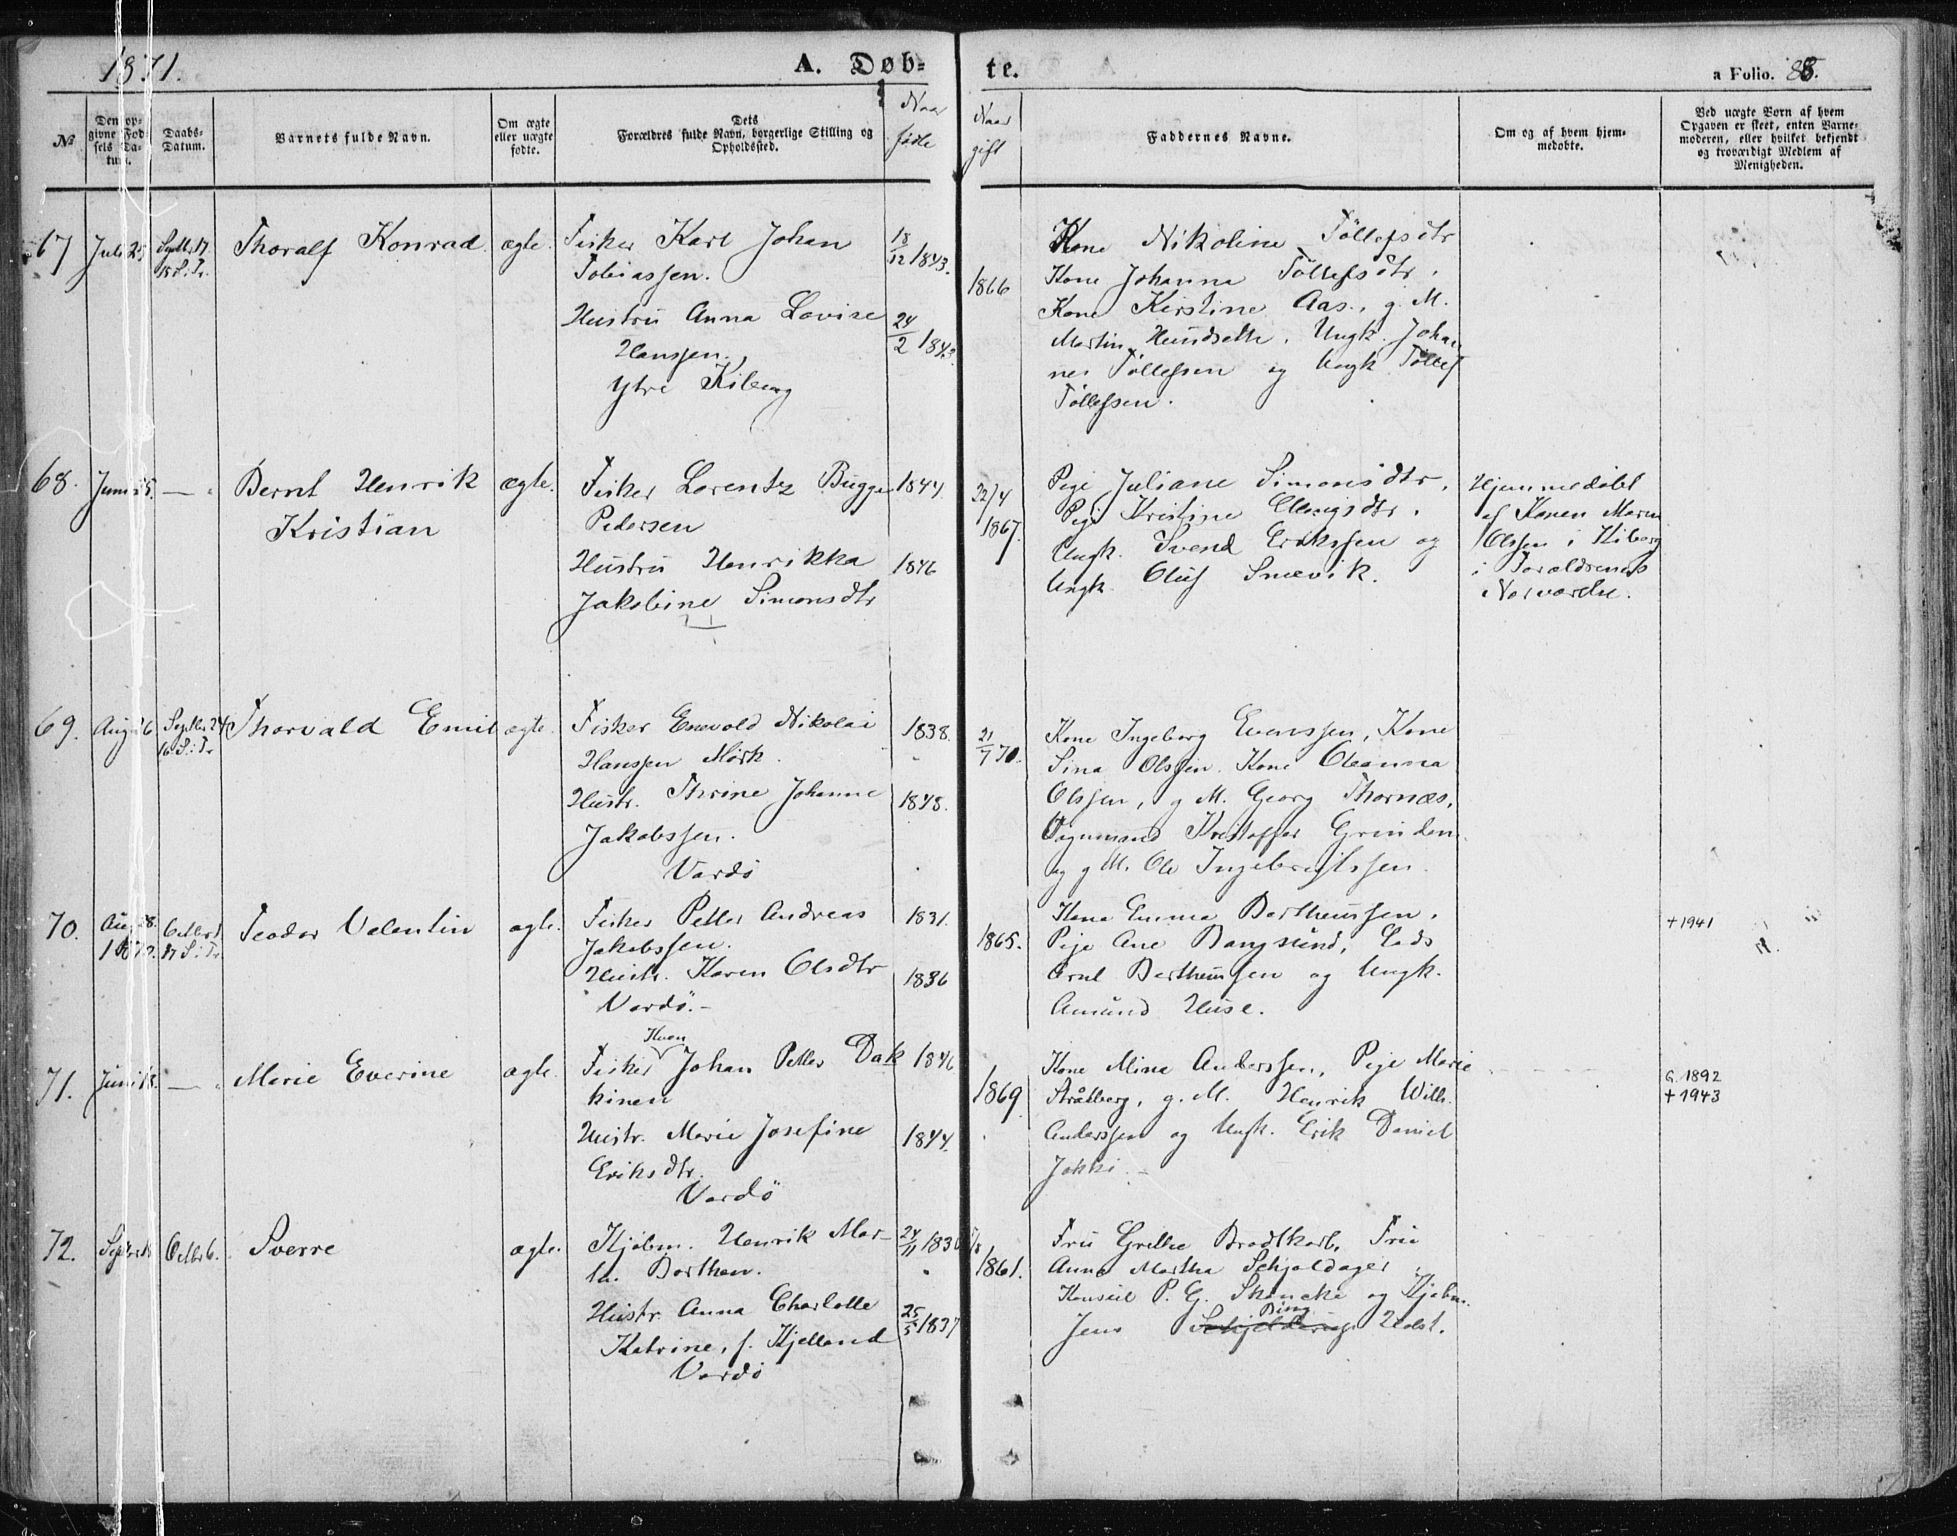 1871.
A. Døb-
te.
a Folio. 88.
№
Den op-
givne Fød-
sels Da-
tum.
Daabs-
Datum.
Barnets fulde Navn.
Om ægte
eller uægte
fødte.
Dets
Forældres fulde Navn, borgerlige Stilling og
Opholdssted.
Naar
fødte
Naar
gift
Faddernes Navne.
Om og af hvem hjem-
medøbte.
Ved uægte Børn af hvem
Opgaven er skeet, enten Barne-
moderen, eller hvilket bekjendt
og troværdigt Medlem af
Menigheden.
67
Juli 25
Septbr 17
15 S. Tr.
Thoralf Konrad
ægte.
Fisker Karl Johan
Tobiassen.
Hustru Anna Lovise
Hanssen.
Ytre Kiberg
18/12 1843.
24/2 1843
1866
Kone Nikoline Tollefsdtr
Kone Johanna Tollefsdtr.
Kone Kirstine Aas, g. M.
Martin Hundseth. Ungk. Johan
nes Tollefsen og Ungk Tollef
Tollefsen.
68.
Juni 5.
—
Bernt Henrik
Kristian
ægte.
Fisker Lorentz Bugge
Pedersen
Hustru Henrikka
Jakobine Simonsdtr
1844.
1846
22/4
1867
Pige Juliane Simonsdtr.
Pige Kristine
Ungk. Svend Erikssen og
Ungk. Oluf Smevik.
Hjemmedøbt
af Konen Maren
Olsen i Kiberg
i Forældrenes
Nærværelse.
69.
Aug 6
Septbr 24
16 S. Tr
Thorvald Emil
ægte.
Fisker Enevold Nikolai
Hanssen Mörk.
Hustr. Thrine Johanne
Jakobssen.
Vardö
1838.
1848.
21/7 70.
Kone Ingeborg Evenssen, Kone
Sina Olssen. Kone Oleanna
Olssen, g M. Georg Thornæs,
Kristoffer Grinden
og g M. Ole Ingebrigtssen.
70.
Aug 28.
1870.
Octbr 1
17 S. Tr
Teodor Valentin
ægte.
Fisker Petter Andreas
Jakobssen.
Hustr. Karen Olsdtr
Vardö.-
1831.
1836
1865.
Kone Emma Bertheussen.
Pige Ane Bangsund, Lods
Arnt Bertheussen og Ungk.
Amund Huse.
+ 1941
71.
Juni 18.
—
Marie Everine
ægte.
Kven
Fisker Johan Petter Dak
kinen
Hustr. Marie Josefine
Eriksdtr.
Vardö
1846
1844.
1869
Kone Mina Anderssen, Pige Marie
Stråtberg, g. M. Henrik Wilh.
Anderssen og Ungk. Erik Daniel
Jokki.
G. 1892
+ 1943
72.
Octbr 6.
Sverre
ægte.
Kjøbm. Henrik Mar-
Barthen.
Hustr. Anna Charlotte
Katrine, f. Kjelland
Vardö
24/11 1830
25/5 1837
1861.
Fru Grethe Brodtkorb, Fru
Anna Martha Schjoldager
Konsul P. G. Skancke og Kjøbm.
Bing
Jens Schjelderup Holst.